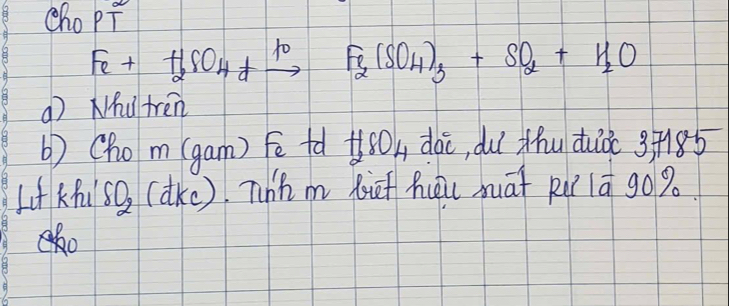 Cho PT
Fe + H₂SO₄ đ t⁰→ Fe₂(SO₄)₃ + SO₂ + H₂O
a) Như trên
b) Cho m (gam) Fe td H₂SO₄ đặc, dư thu được 3,7185
Lít khí SO₂ (đkc). Tính m biết hiệu suất pư là 90%.
Cho